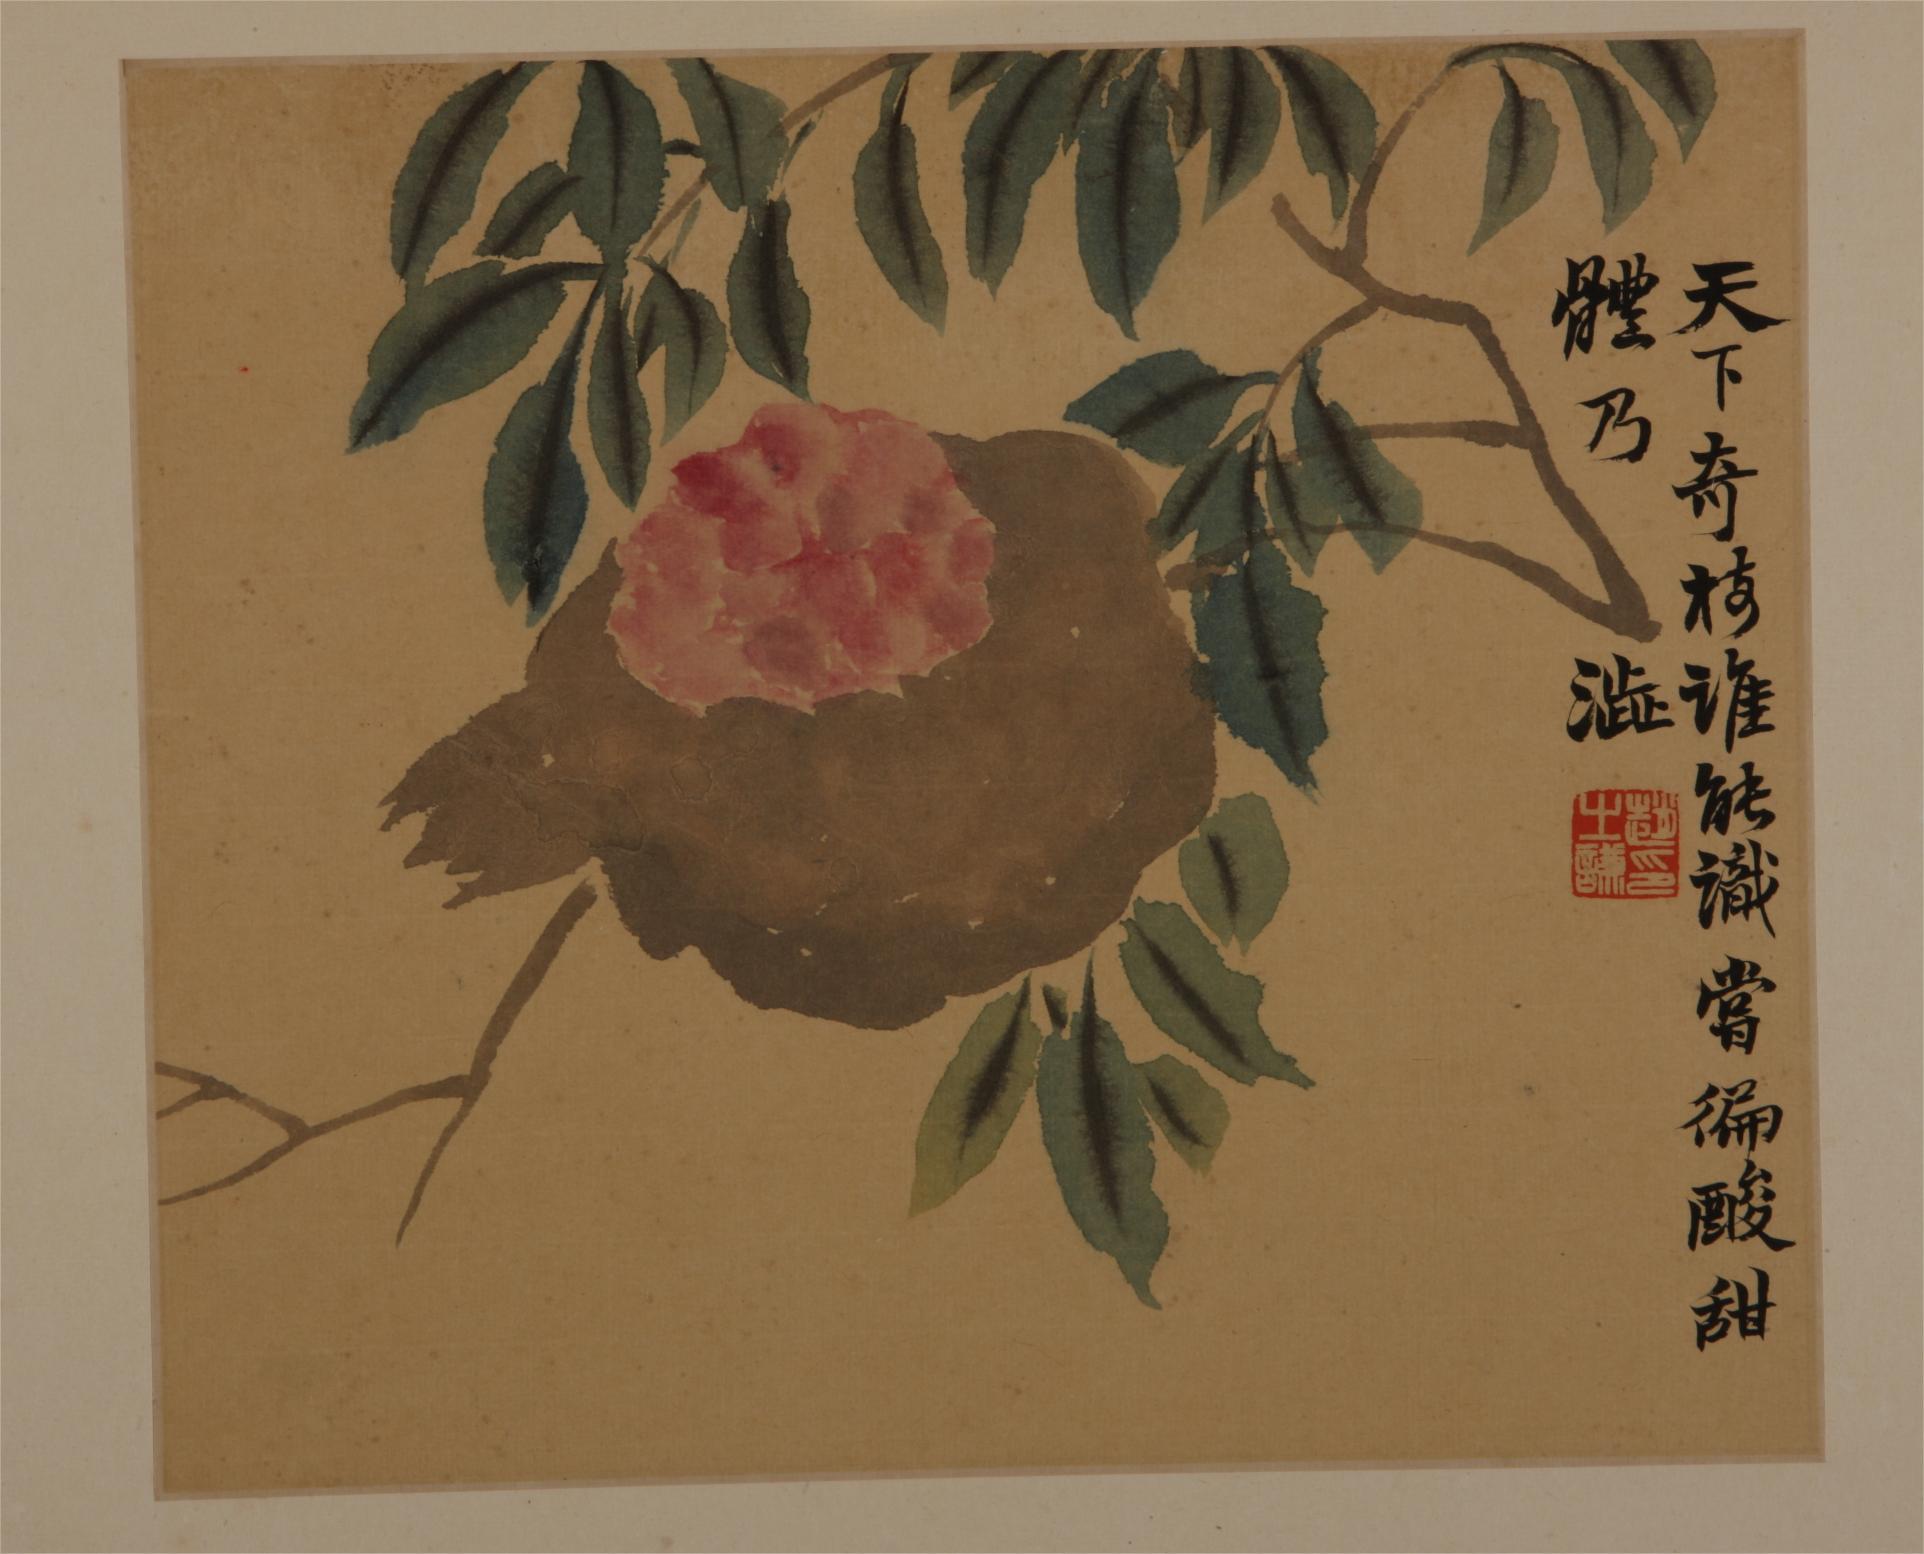 天下奇核誰能識嘗徧酸甜
體乃澁
趙印之謙